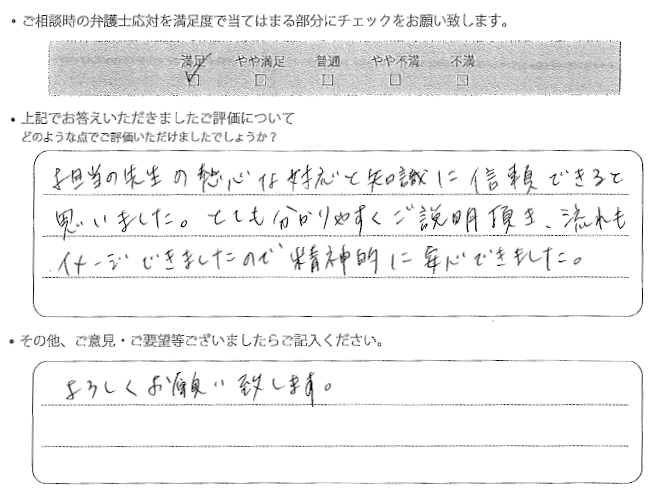 ・ご相談時の弁護士応対を満足度で当てはまる部分にチェックをお願い致します。
満足 やや満足 普通 やや不満 不満
・上記でお答えいただきましたご評価について
どのような点でご評価いただけましたでしょうか？
お担当の先生の熱心な対応と知識に信頼できると
思いました。とても分かりやすくご説明頂き、流れも
イメージできましたので精神的に安心できました。
・その他、ご意見・ご要望等ございましたらご記入ください。
よろしくお願い致します。